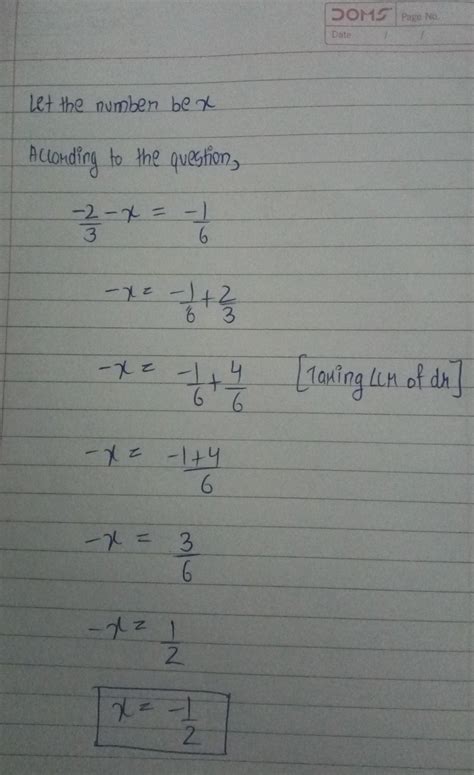 DOMS Page No.
Date / /
Let the number be x
According to the question,
-2/3 - x = -1/6
-x = -1/6 + 2/3
-x = -1/6 + 4/6 [Taking LCM of dn]
-x = -1+4/6
-x = 3/6
-x = 1/2
x = -1/2